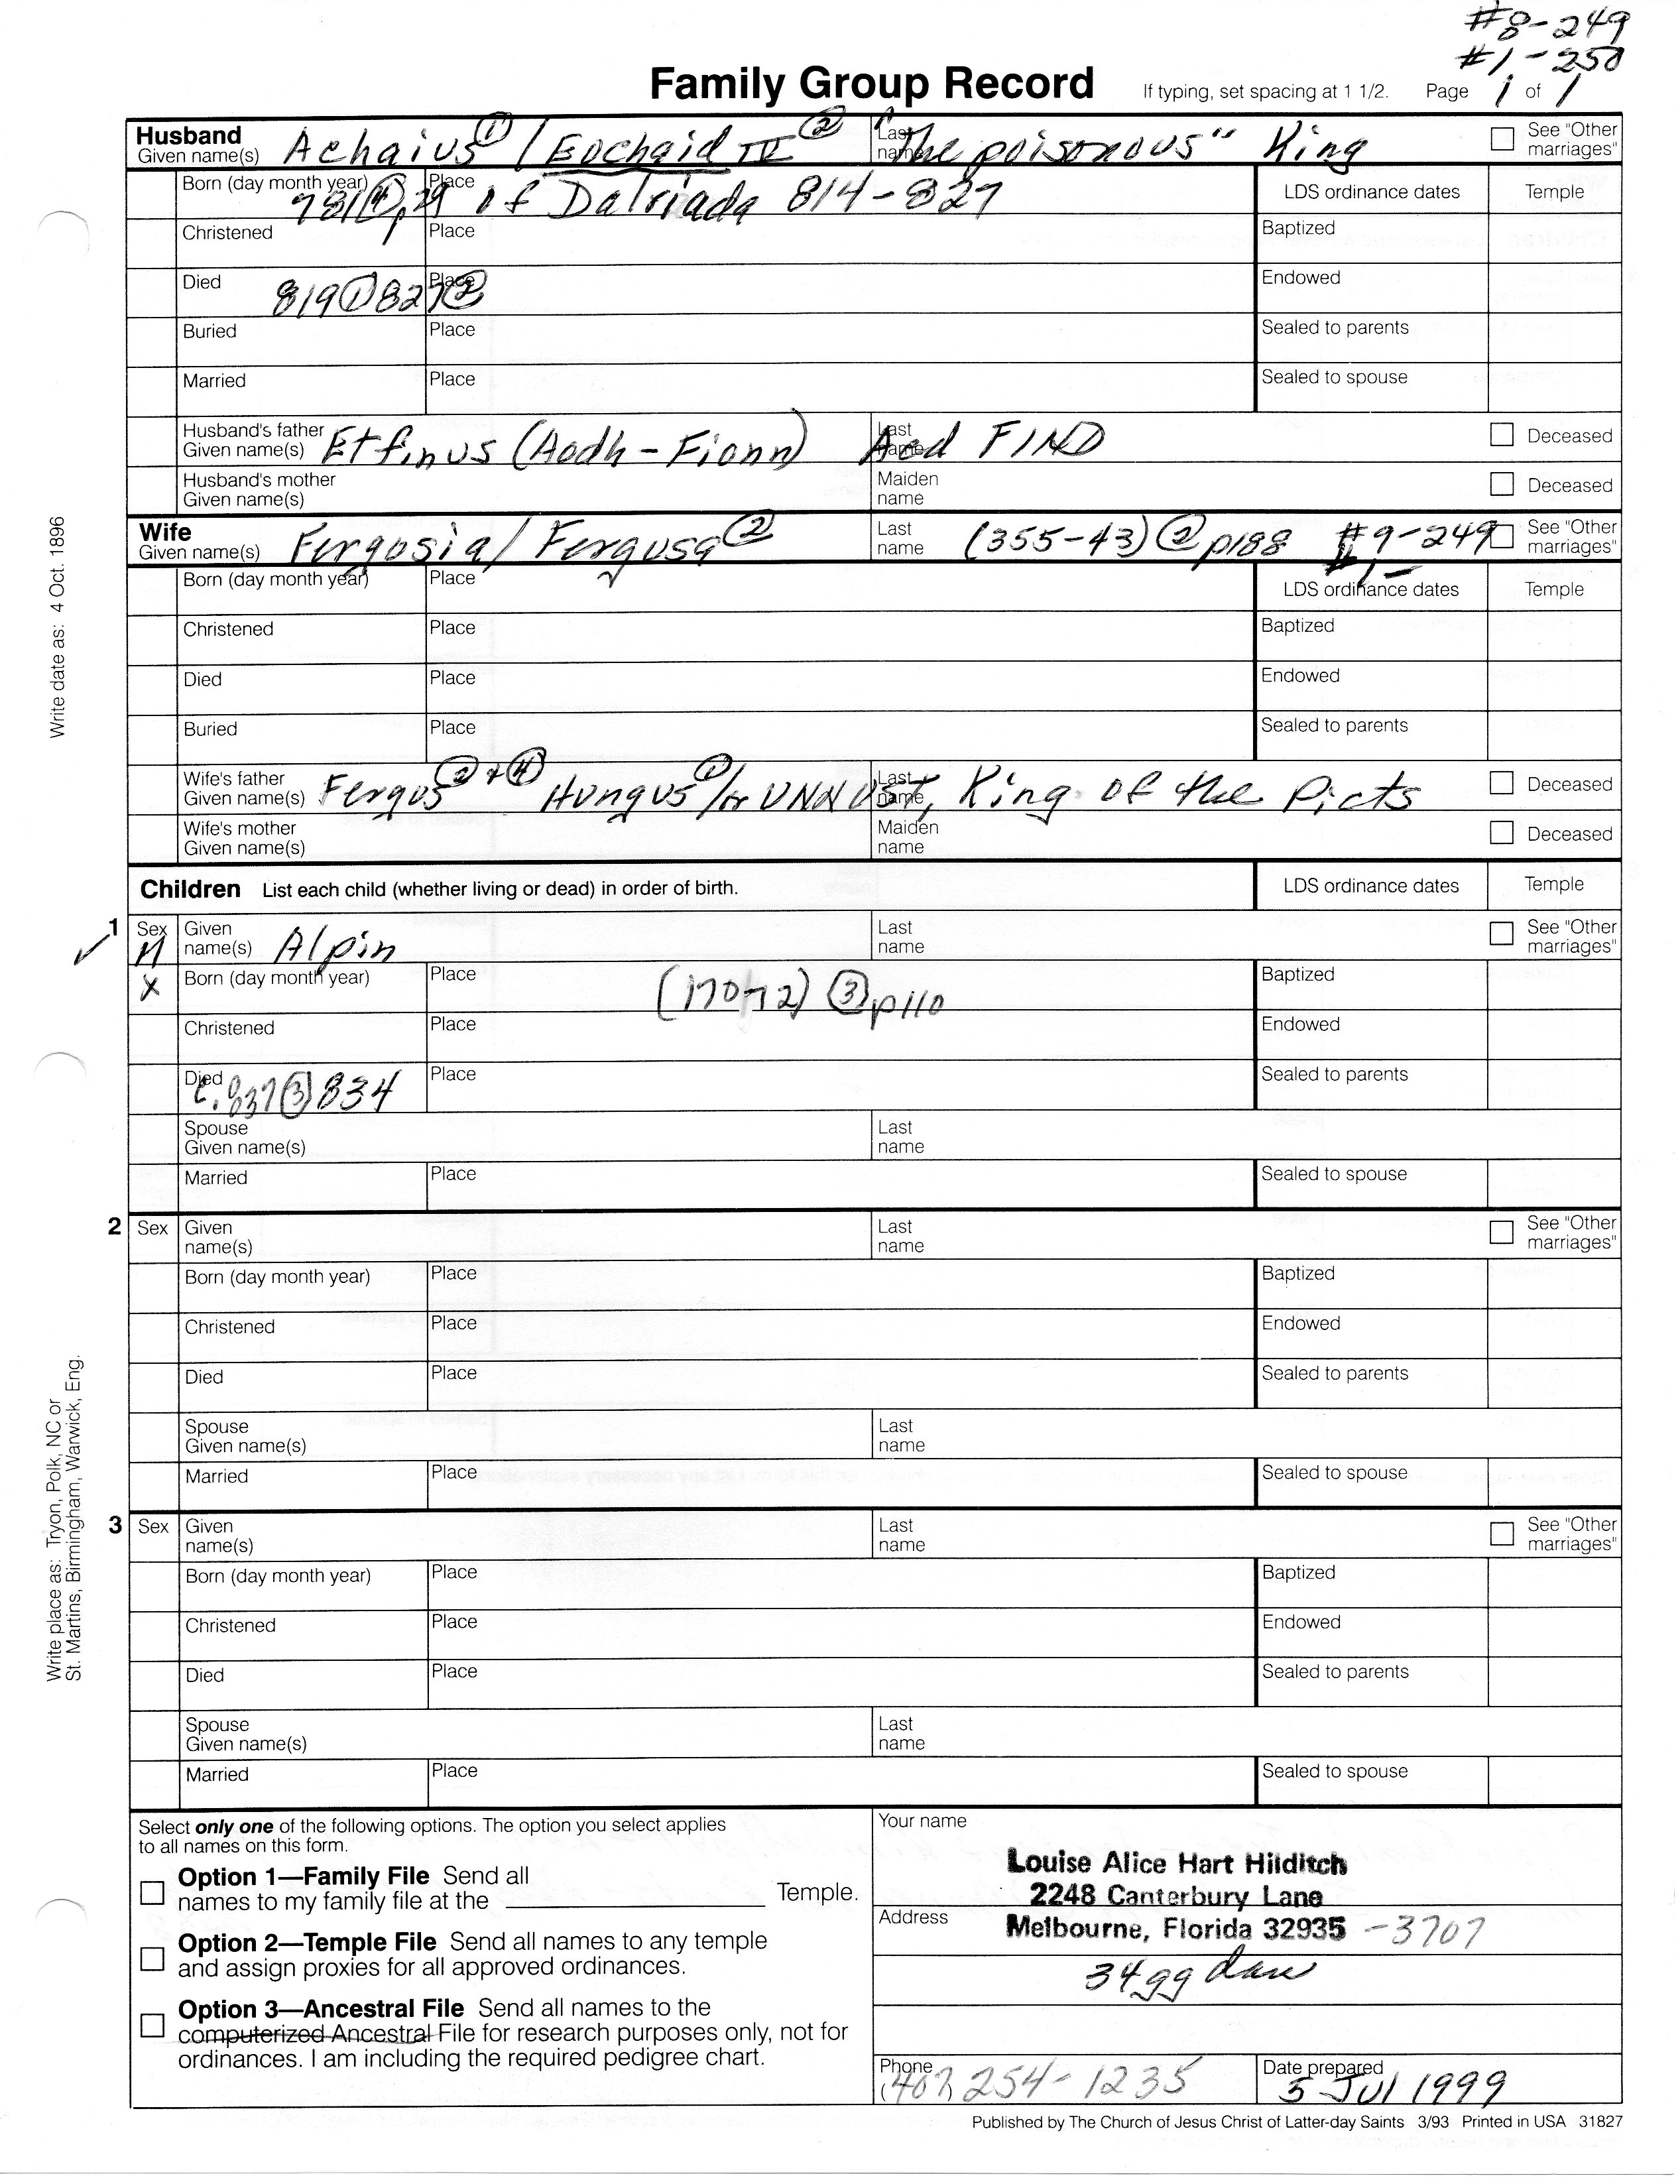 #8-249
#1-250
Family Group Record If typing, set spacing at 1 1/2. Page 1 of 1
Husband
Given name(s) Achaius① / Eochaid IV② Last name "The poisonous" King See "Other marriages"
Born (day month year) 781④, Place of Dalriada 814-827 LDS ordinance dates Temple
Christened Place Baptized
Died 819①827② Place Endowed
Buried Place Sealed to parents
Married Place Sealed to spouse
Husband's father Given name(s) Etfinus (Aodh-Fionn) Last name Aed FIND Deceased
Husband's mother Given name(s) Maiden name Deceased
Wife
Given name(s) Fergosia/ Fergusa② Last name (355-43)② p188 #9-249 See "Other marriages"
Born (day month year) Place LDS ordinance dates Temple
Christened Place Baptized
Died Place Endowed
Buried Place Sealed to parents
Wife's father Given name(s) Fergus②+④ Hungus①/or UNNUST, Last name King of the Picts Deceased
Wife's mother Given name(s) Maiden name Deceased
Children List each child (whether living or dead) in order of birth. LDS ordinance dates Temple
1 Sex M Given name(s) Alpin Last name See "Other marriages"
X Born (day month year) Place (170-72) ③ p110 Baptized
Christened Place Endowed
Died c. 837③834 Place Sealed to parents
Spouse Given name(s) Last name
Married Place Sealed to spouse
2 Sex Given name(s) Last name See "Other marriages"
Born (day month year) Place Baptized
Christened Place Endowed
Died Place Sealed to parents
Spouse Given name(s) Last name
Married Place Sealed to spouse
3 Sex Given name(s) Last name See "Other marriages"
Born (day month year) Place Baptized
Christened Place Endowed
Died Place Sealed to parents
Spouse Given name(s) Last name
Married Place Sealed to spouse
Select only one of the following options. The option you select applies
to all names on this form.
Option 1—Family File Send all
names to my family file at the Temple.
Option 2—Temple File Send all names to any temple
and assign proxies for all approved ordinances.
Option 3—Ancestral File Send all names to the
computerized Ancestral File for research purposes only, not for
ordinances. I am including the required pedigree chart.
Your name
Louise Alice Hart Hilditch
2248 Canterbury Lane
Address Melbourne, Florida 32935 -3707
34gg
Phone (407) 254-1235 Date prepared 5 Jul 1999
Published by The Church of Jesus Christ of Latter-day Saints 3/93 Printed in USA 31827
Write date as: 4 Oct. 1896
Write place as: Tryon, Polk, NC or
St. Martins, Birmingham, Warwick, Eng.